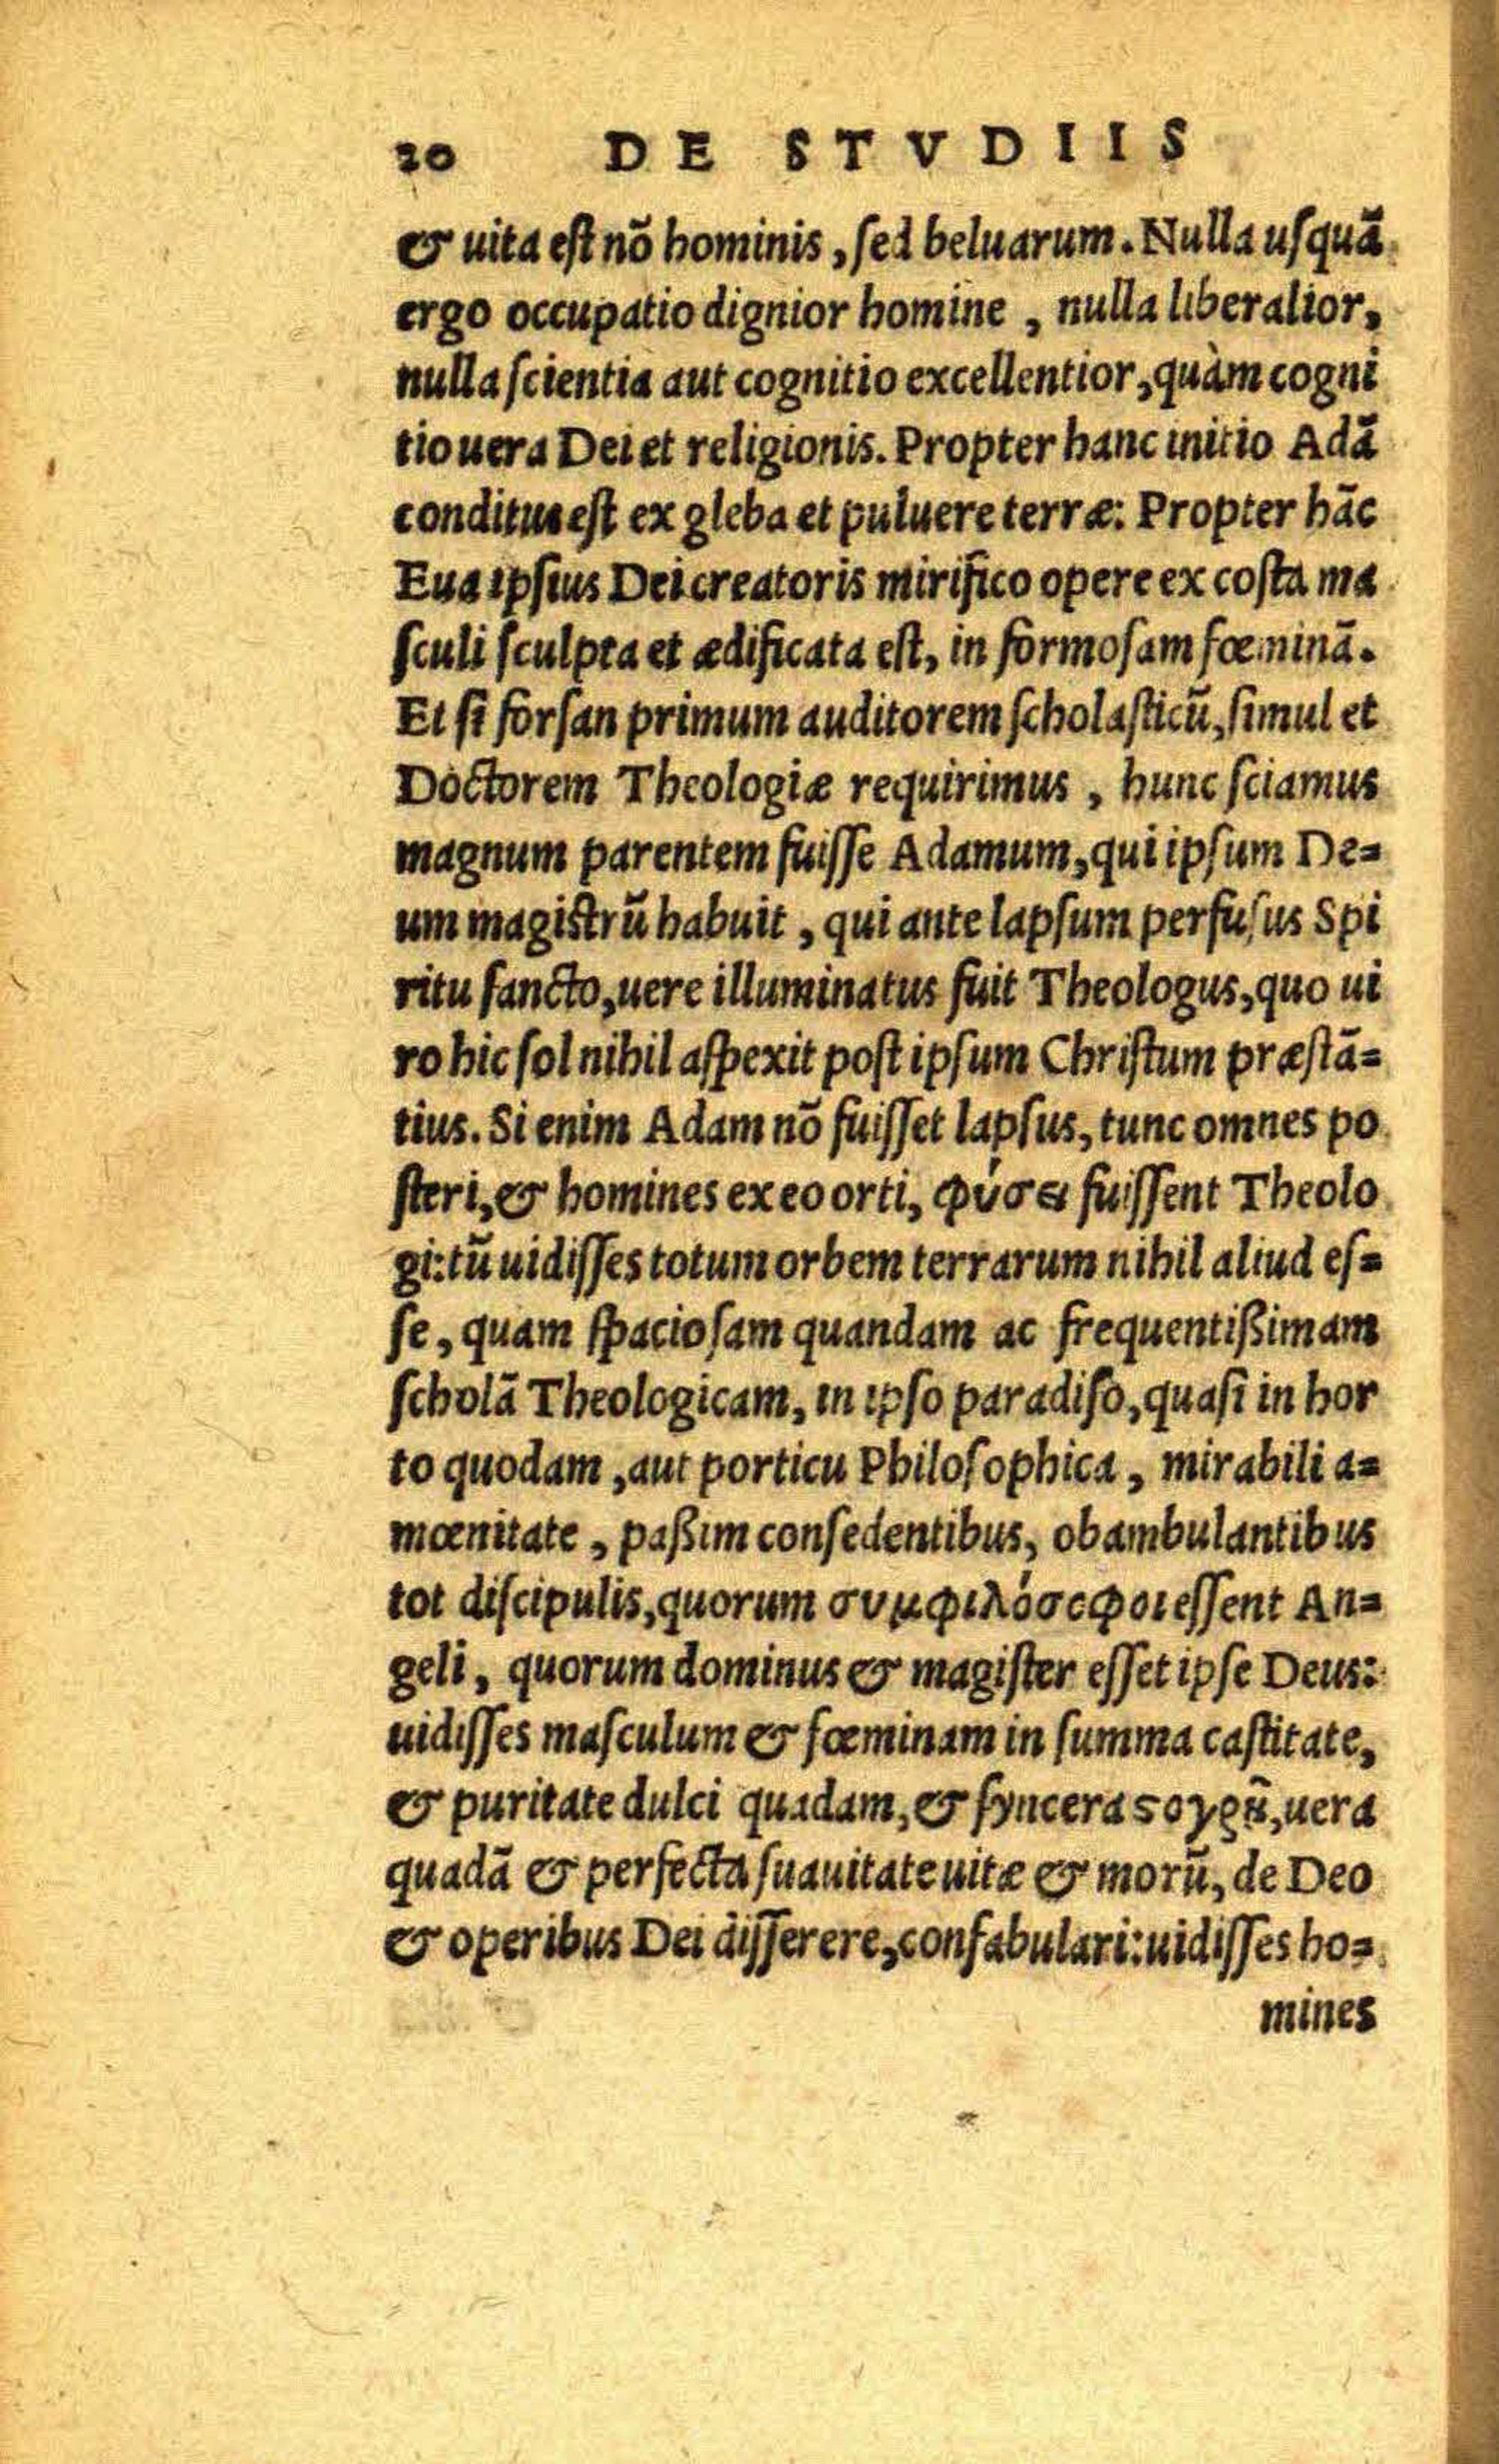 20 DE STVDIIS
& uita est nõ hominis, sed beluarum. Nulla usquã
ergo occupatio dignior homine, nulla liberalior,
nulla scientia aut cognitio excellentior, quàm cogni
tio uera Dei et religionis. Propter hanc initio Adã
conditus est ex gleba et puluere terræ: Propter hãc
Eua ipsius Dei creatoris mirifico opere ex costa ma
sculi sculpta et ædificata est, in formosam fœminã.
Et si forsan primum auditorem scholasticũ, simul et
Doctorem Theologiæ requirimus, hunc sciamus
magnum parentem fuisse Adamum, qui ipsum De=
um magistrũ habuit, qui ante lapsum perfusus Spi
ritu sancto, uere illuminatus fuit Theologus, quo ui
ro hic sol nihil aspexit post ipsum Christum præstã=
tius. Si enim Adam nõ fuisset lapsus, tunc omnes po
steri, & homines ex eo orti, φύσει fuissent Theolo
gi: tũ uidisses totum orbem terrarum nihil aliud es=
se, quam spaciosam quandam ac frequentißimam
scholã Theologicam, in ipso paradiso, quasi in hor
to quodam, aut porticu Philosophica, mirabili a=
mœnitate, paßim consedentibus, obambulantibus
tot discipulis, quorum συμφιλόσοφοι essent An=
geli, quorum dominus & magister esset ipse Deus:
uidisses masculum & fœminam in summa castitate,
& puritate dulci quadam, & syncera ϛοργῇ, uera
quadã & perfecta suauitate uitæ & morũ, de Deo
& operibus Dei disserere, confabulari: uidisses ho=
mines